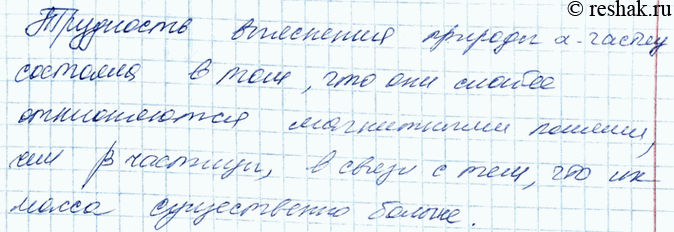 © reshak.ru
Трудность выяснения природы α-частиц
состояла в том, что они слабее
отклоняются магнитными полями,
чем β частицы, в связи с тем, что их
масса существенно больше.